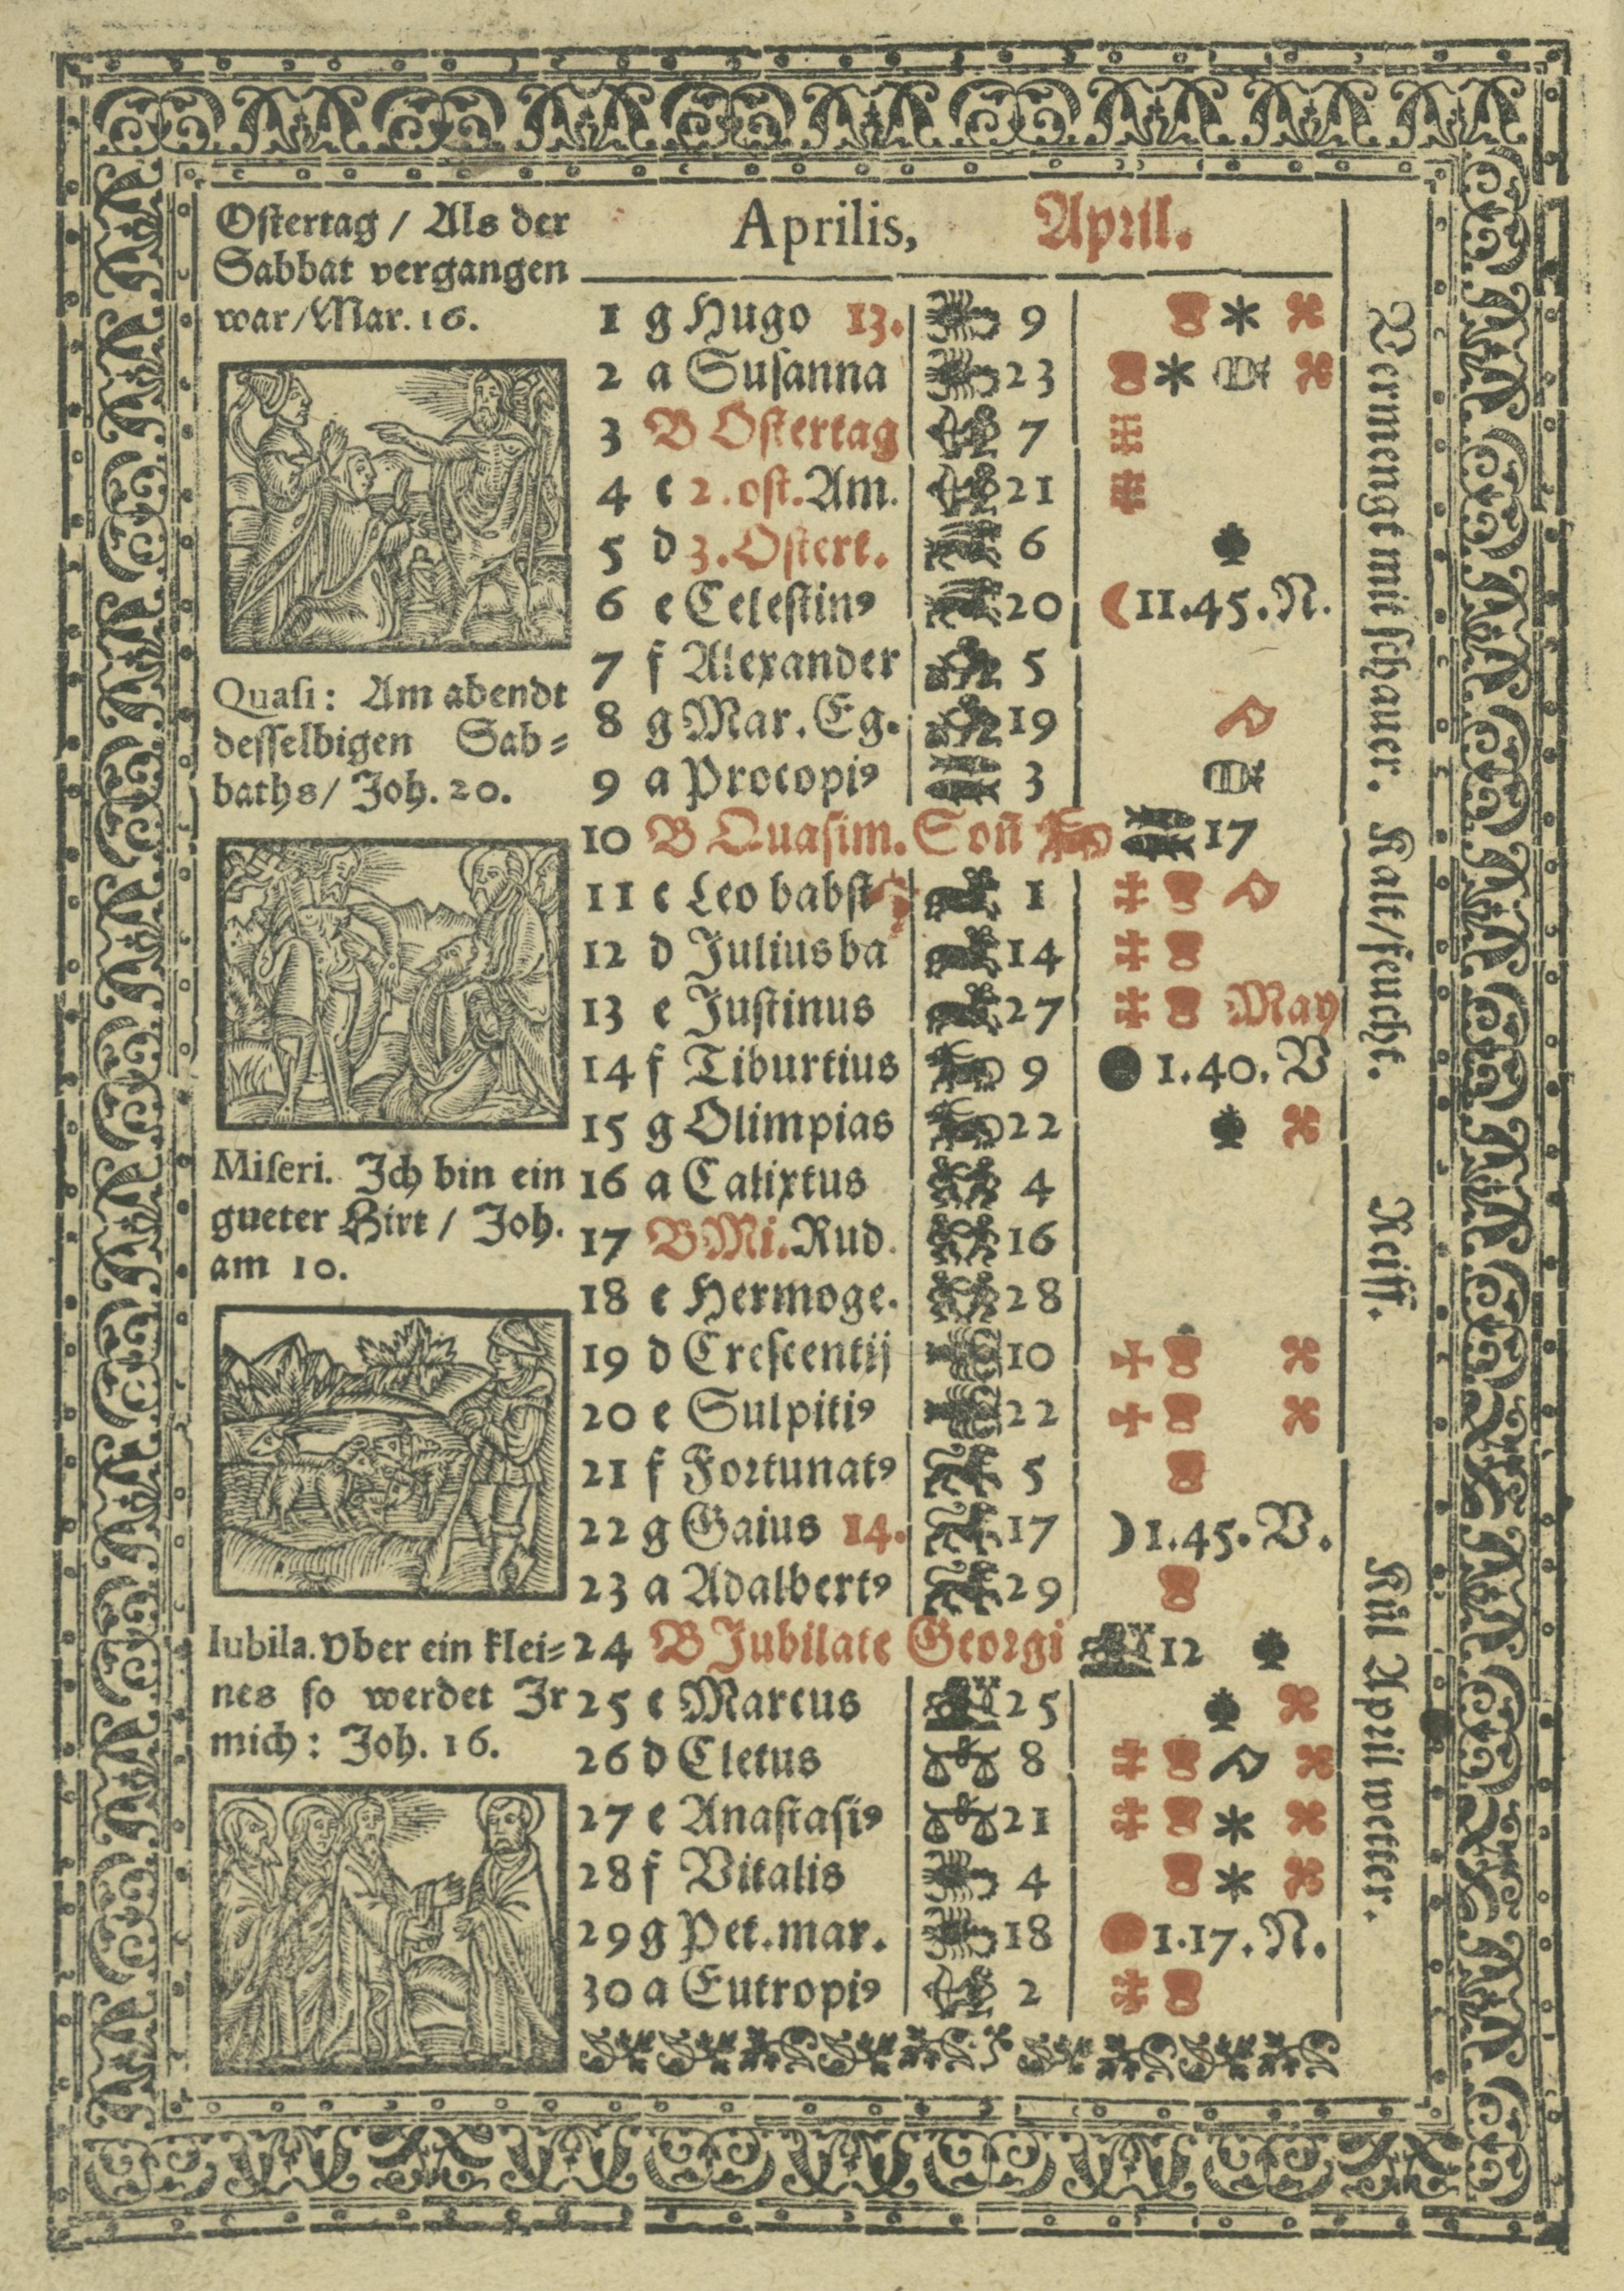 Ostertag / Als der
Sabbat vergangen
war/Mar. 16.
Quasi: Am abendt
desselbigen Sab=
baths/ Joh. 20.
Miseri. Ich bin ein
gueter Hirt / Joh.
am 10.
Iubila. Vber ein klei=
nes so werdet Ir
mich: Joh. 16.
Aprilis, April.
1 g Hugo 13. 9
2 a Susanna 23
3 B Ostertag 7
4 c 2. ost. Am. 21
5 d 3. Ostert. 6
6 e Celestinꝰ 20 11.45.N.
7 f Alexander 5
8 g Mar. Eg. 19
9 a Procopiꝰ 3
10 B Quasim. Soñ 17
11 c Leo babst 1
12 d Julius ba 14
13 e Justinus 27 May
14 f Tiburtius 9 1.40. V
15 g Olimpias 22
16 a Calixtus 4
17 B Mi. Rud. 16
18 c Hermoge. 28
19 d Crescentij 10
20 e Sulpitiꝰ 22
21 f Fortunatꝰ 5
22 g Gaius 14. 17 1.45. V.
23 a Adalbertꝰ 29
24 B Jubilate Georgi 12
25 c Marcus 25
26 d Cletus 8
27 e Anastasiꝰ 21
28 f Vitalis 4
29 g Pet. mar. 18 1.17. N.
30 a Eutropiꝰ 2
Vermengt mit schauer. Kalt/feucht. Reiff. Kül April wetter.